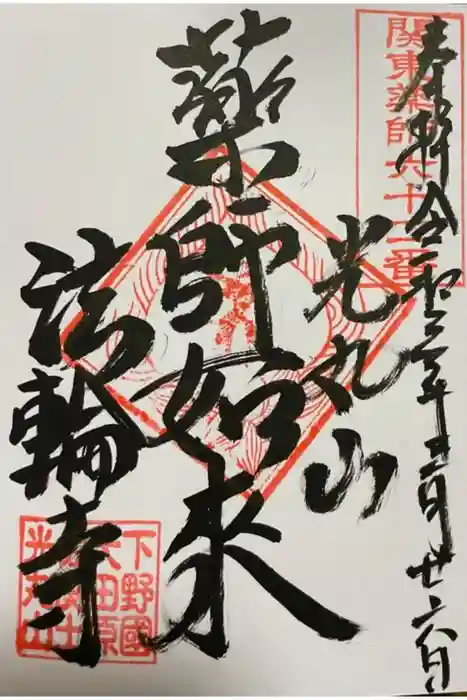 奉拝 令和三年十二月廿六日
関東薬師六十二番
光丸山
薬師如来
法輪寺
下野國
大田原
光丸山